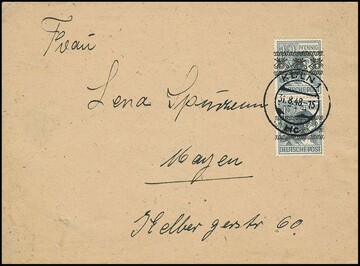 Frau
Lena
Mayen
Kelbergerstr 60
PFENNIG
KÖLN 1
31.8.48.-15
DEUTSCHE POST